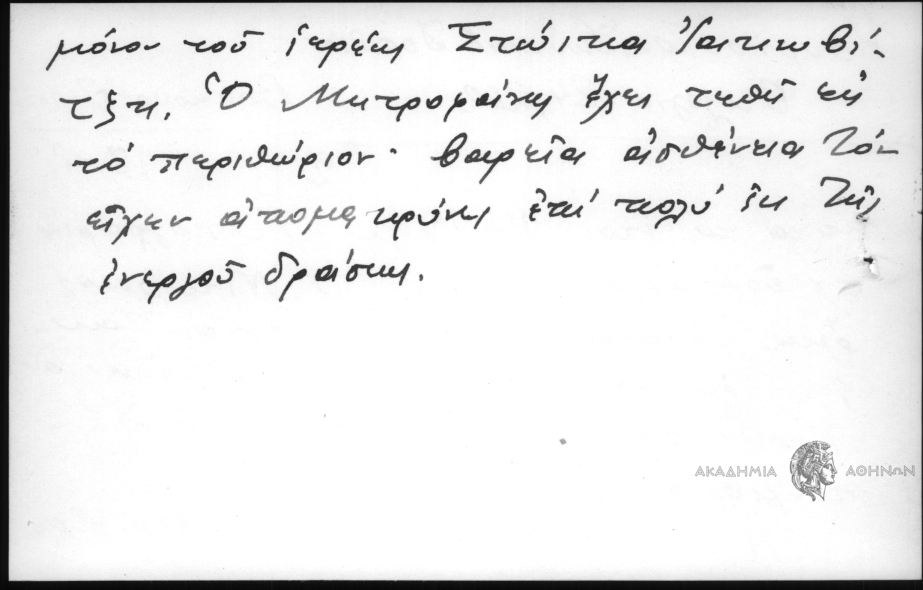 μόνον τοῦ ἱερέως Στώικα Ἰακωβί-
τζη. Ὁ Μητροφάνης ἔχει τεθῆ εἰς
τό περιθώριον· βαρεῖα ἀσθένεια τόν
εἶχεν ἀπομακρύνει ἐπί πολύ ἐκ τῆς
ἐνεργοῦ δράσεως.
ΑΚΑΔΗΜΙΑ ΑΘΗΝΩΝ